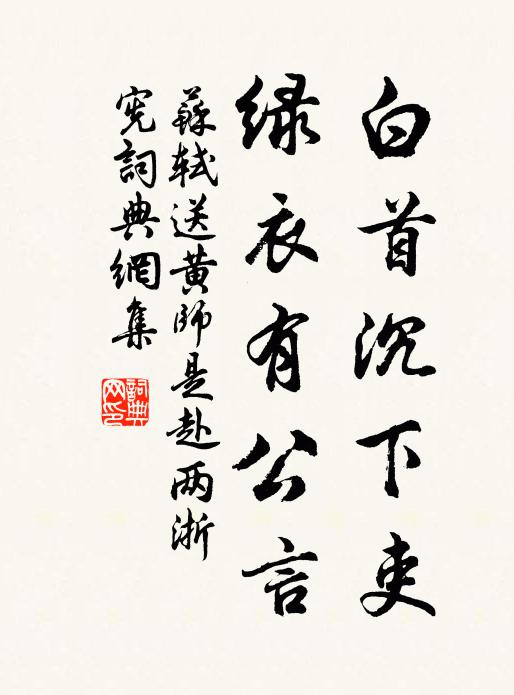 白首沉下吏
绿衣有公言
蘇轼送黄師是赴两浙
宪詞典網集
詞典网印